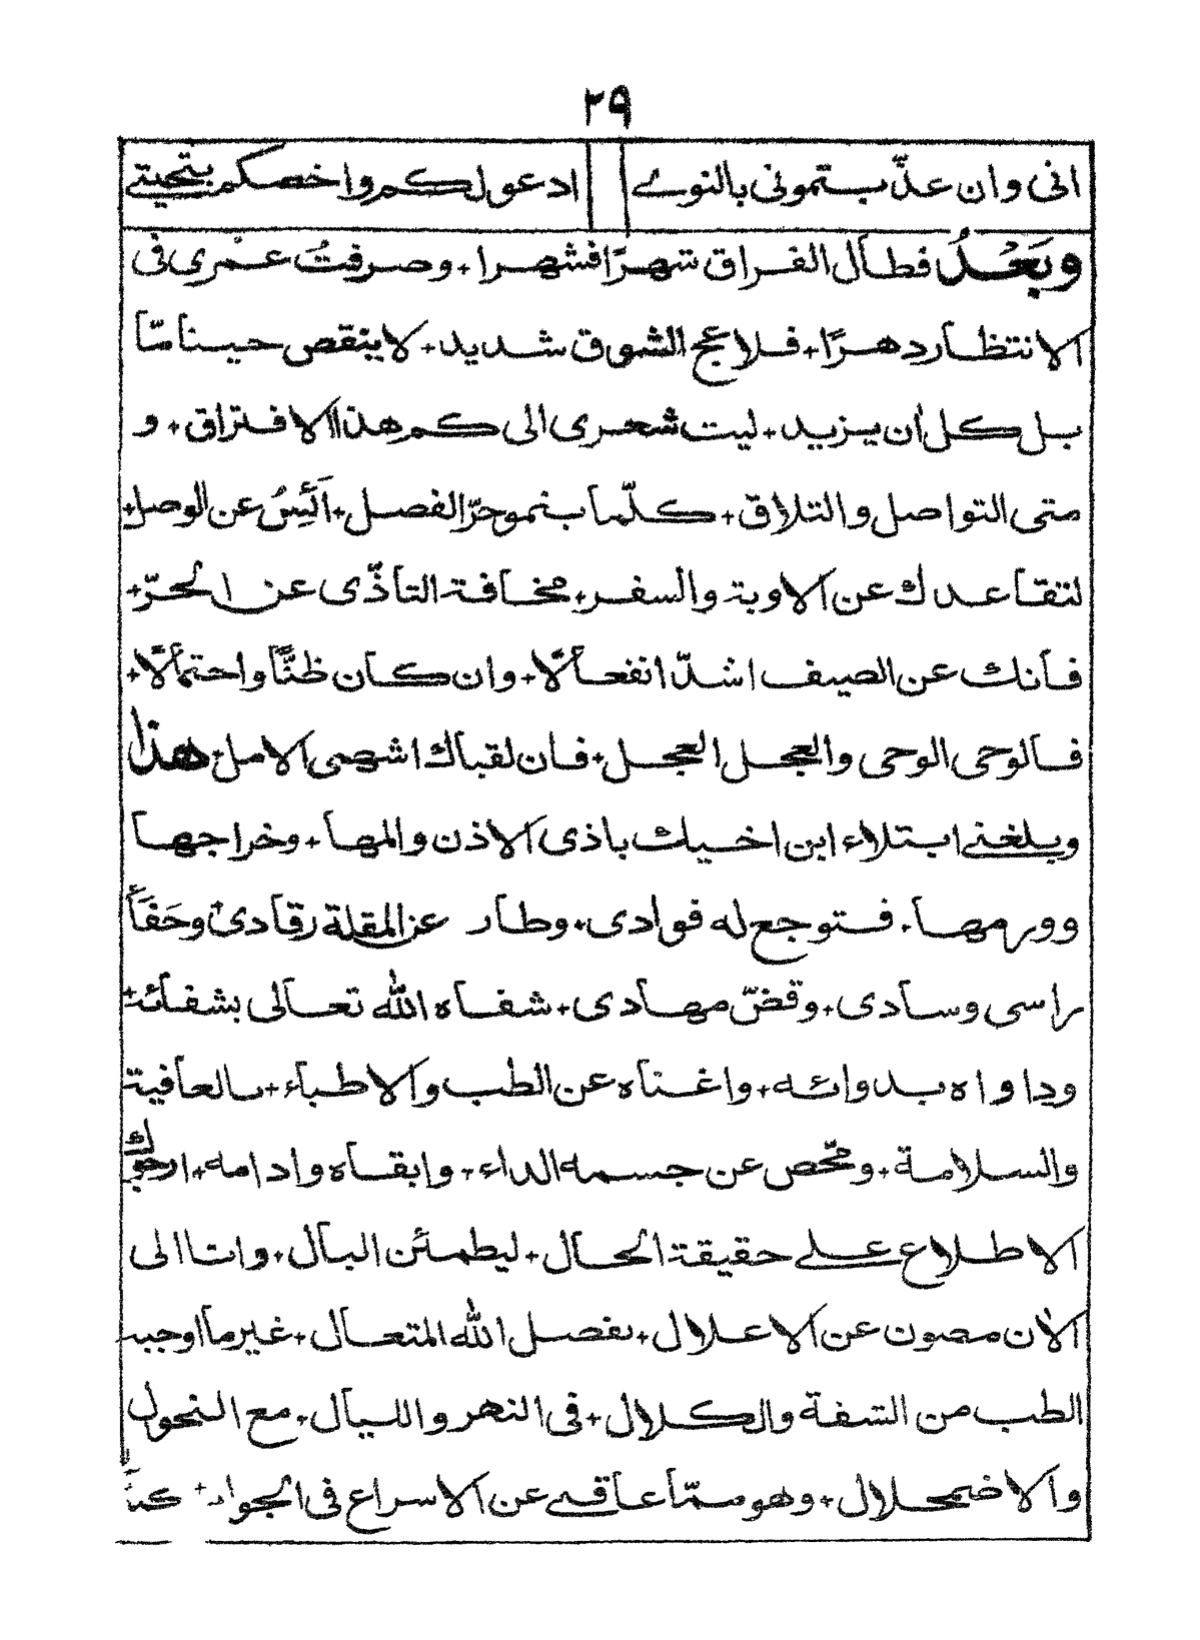 ٢٩
انى وان عذّبتمونى بالنوے ادعو لكم واخصكم بتحيتے
وبَعْدُ فطال الفراق شهرًا فشهرا ٠ وصرفتُ عمرى فى
الانتظار دهرًا ٠ فلاعج الشوق شديد ٠ لا ينقص حينامّا
بل كل ان يزيد ٠ ليت شعرى الى كم هذا الافتراق ٠ و
متى التواصل والتلاق ٠ كلّما ينمو حرّ الفصل ٠ آئَيسُ عن الوصل ٠
لتقاعدك عن الاوبة والسفر ٠ مخافة التاذّى عن الحرّ ٠
فانك عن الصيف اشدّ انفعالًا ٠ وان كان ظنًّا واحتمالًا ٠
فالوحى الوحى والعجل العجل ٠ فان لقياك اشهى الامل ٠ هذا
وبلغنے ابتلاء ابن اخيك باذى الاذن والمها ٠ وخراجها
وورمها ٠ فتوجع له فوادى ٠ وطار عن المقلة رقادى ٠ وجَفَا
راسى وسادى ٠ وقضّ مهادى ٠ شفاه الله تعالى بشفائه ٠
وداواه بدوائه ٠ واغناه عن الطب والاطباء ٠ بالعافية
والسلامة ٠ ومحّص عن جسمه الداء ٠ وابقاه وادامه ٠ ارجوك
الاطلاع علے حقيقة الحال ٠ ليطمئن البال ٠ وانا الى
الأن مصون عن الاعلال ٠ بفضل الله المتعال ٠ غير ما اوجبه
الطب من الشفة والكلال ٠ فى النهر والليال ٠ مع النحول
والاضمحلال ٠ وهو ممّا عاقنے عن الاسراع فى الجواب ٠